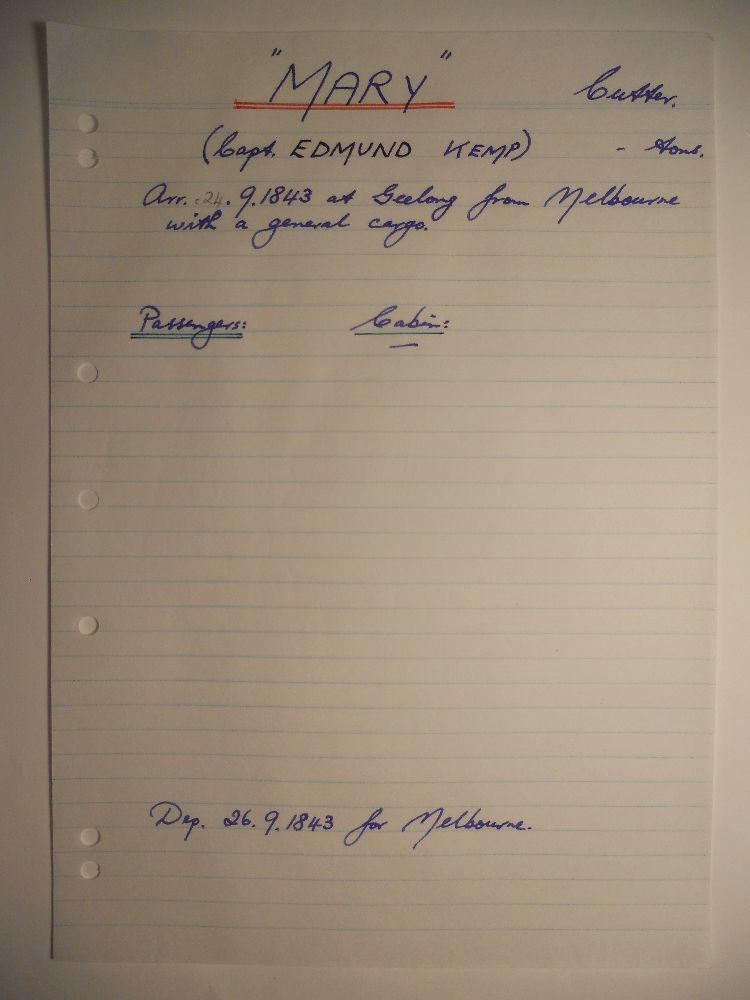 "MARY" Cutter.
(Capt. EDMUND KEMP) - tons.
Arr. 24.9.1843 at Geelong from Melbourne
with a general cargo.
Passengers: Cabin:
—
Dep. 26.9.1843 for Melbourne.